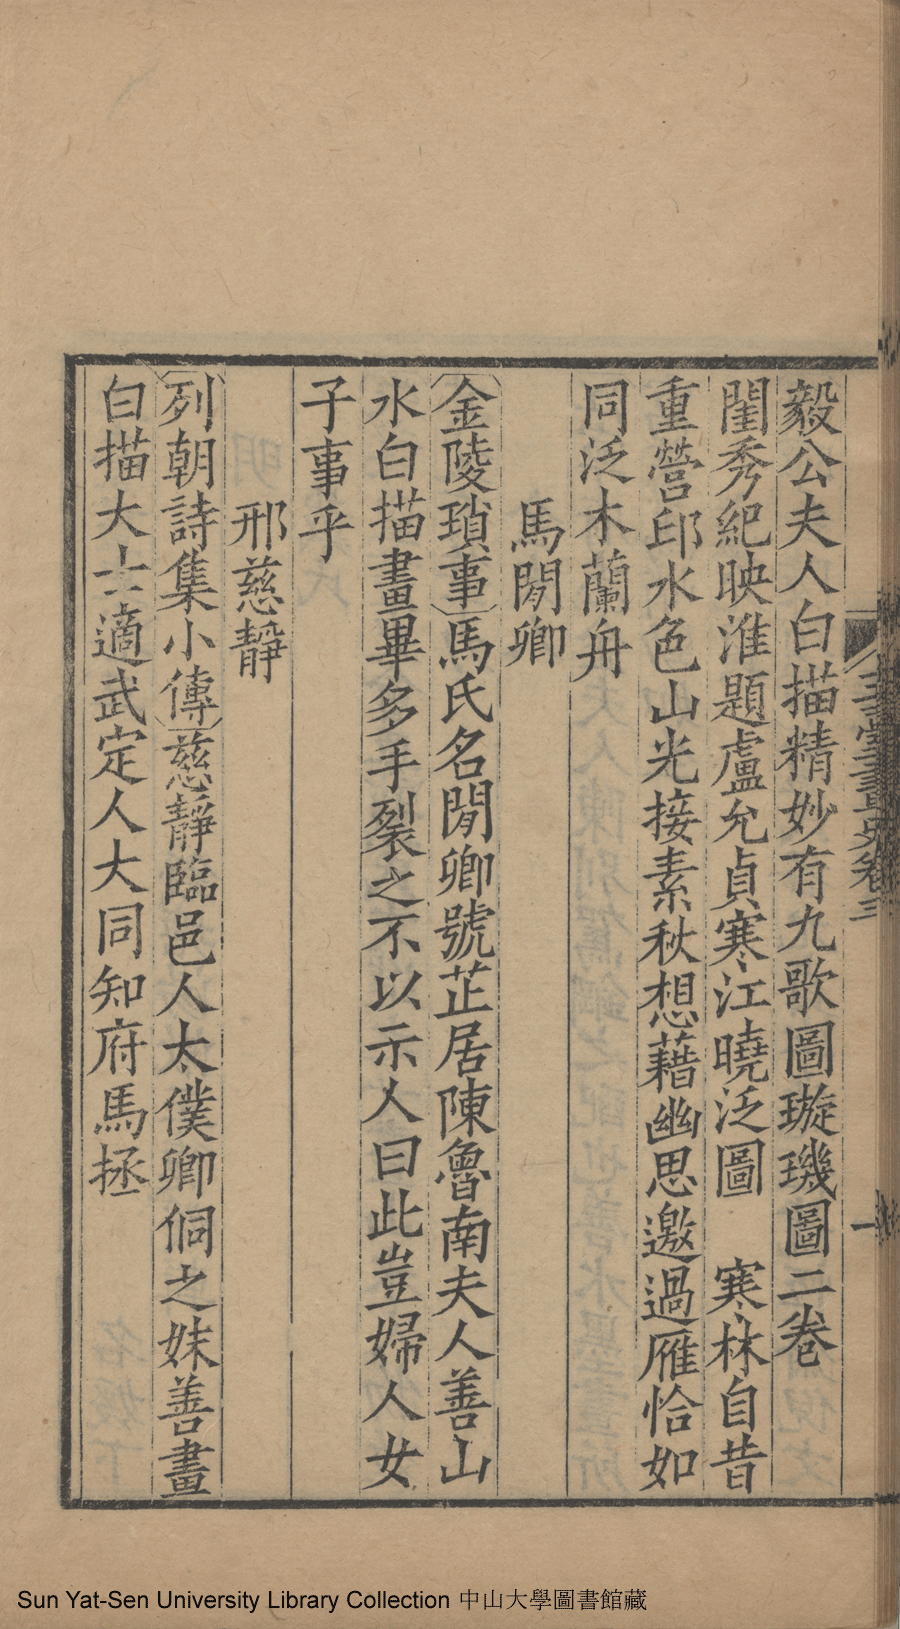 毅公夫人白描精妙有九歌圖璇璣圖二卷
閨秀紀映淮題盧允貞寒江曉泛圖 寒林自昔
重營邱水色山光接素秋想藉幽思邀過雁恰如
同泛木蘭舟
馬閒卿
〔金陵瑣事〕馬氏名閒卿號芷居陳魯南夫人善山
水白描畫畢多手裂之不以示人曰此豈婦人女
子事乎
邢慈靜
〔列朝詩集小傳〕慈靜臨邑人太僕卿侗之妹善畫
白描大士適武定人大同知府馬拯
Sun Yat-Sen University Library Collection 中山大學圖書館藏